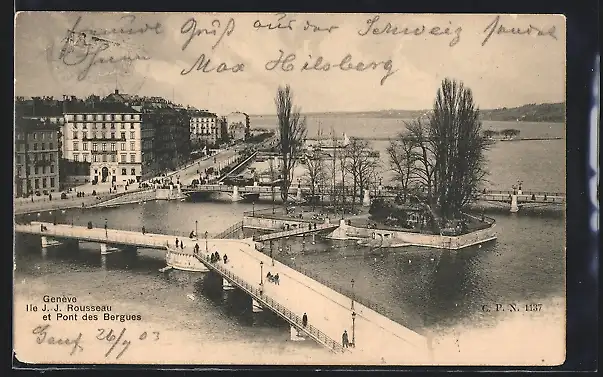 Freundl. Gruß aus der Schweiz sendet
Ihr
Max Hilsberg.
Genève
Ile J. J. Rousseau
et Pont des Bergues
C. P. N. 1137
Genf 26/9 03